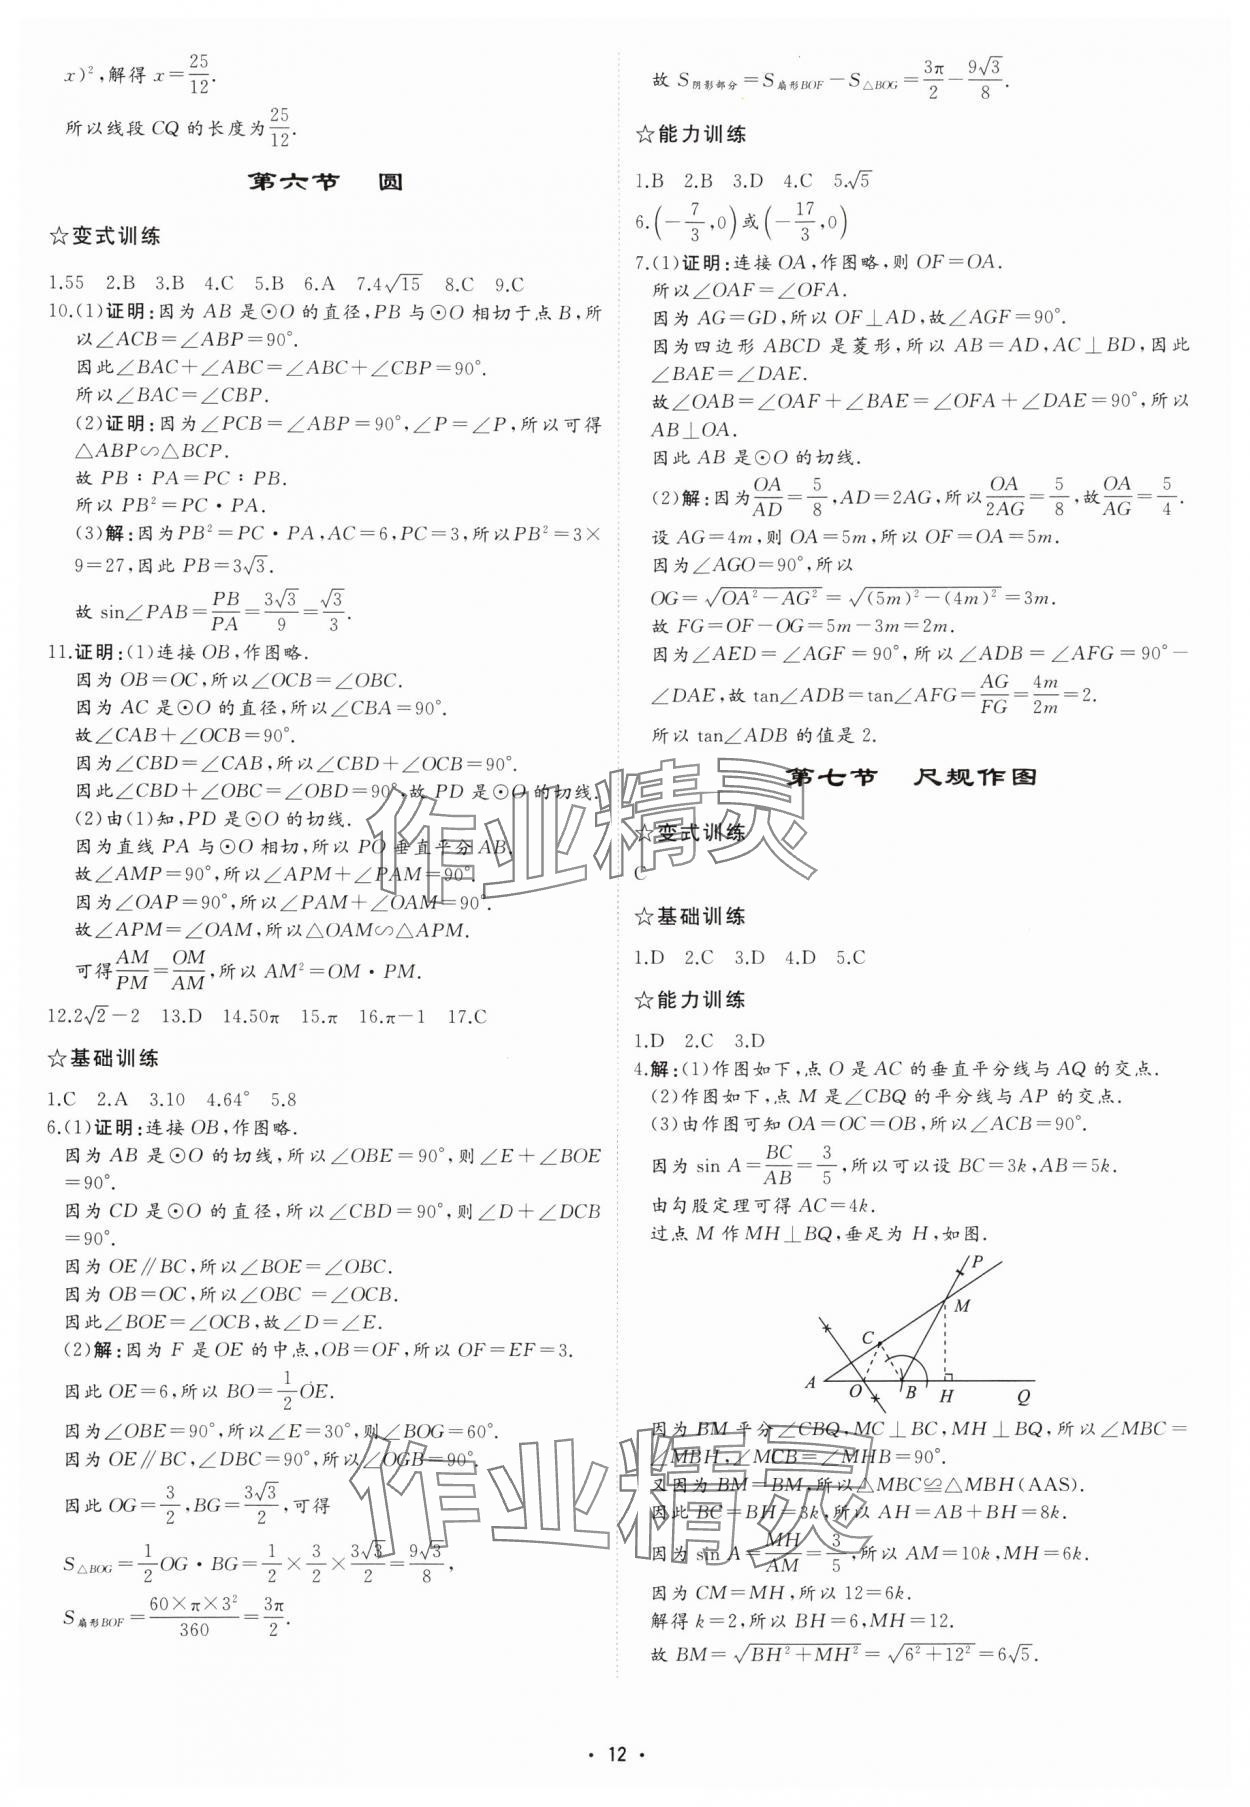 x)²,解得 x=25/12.
所以线段 CQ 的长度为25/12.
第六节 圆
☆变式训练
1.55 2.B 3.B 4.C 5.B 6.A 7.4√15 8.C 9.C
10.(1)证明:因为 AB 是⊙O 的直径,PB 与⊙O 相切于点 B,所
以∠ACB=∠ABP=90°.
因此∠BAC+∠ABC=∠ABC+∠CBP=90°.
所以∠BAC=∠CBP.
(2)证明:因为∠PCB=∠ABP=90°,∠P=∠P,所以可得
△ABP∽△BCP.
故 PB∶PA=PC∶PB.
所以 PB²=PC·PA.
(3)解:因为PB²=PC·PA,AC=6,PC=3,所以PB²=3×
9=27,因此 PB=3√3.
故 sin∠PAB=PB/PA=3√3/9=√3/3.
11.证明:(1)连接 OB,作图略.
因为 OB=OC,所以∠OCB=∠OBC.
因为 AC 是⊙O 的直径,所以∠CBA=90°.
故∠CAB+∠OCB=90°.
因为∠CBD=∠CAB,所以∠CBD+∠OCB=90°.
因此∠CBD+∠OBC=∠OBD=90°,故 PD 是⊙O 的切线.
(2)由(1)知,PD 是⊙O 的切线.
因为直线 PA 与⊙O 相切,所以 PO 垂直平分 AB.
故∠AMP=90°,所以∠APM+∠PAM=90°.
因为∠OAP=90°,所以∠PAM+∠OAM=90°.
故∠APM=∠OAM,所以△OAM∽△APM.
可得AM/PM=OM/AM,所以 AM²=OM·PM.
12.2√2-2 13.D 14.50π 15.π 16.π-1 17.C
☆基础训练
1.C 2.A 3.10 4.64° 5.8
6.(1)证明:连接 OB,作图略.
因为 AB 是⊙O 的切线,所以∠OBE=90°,则∠E+∠BOE
=90°.
因为 CD 是⊙O 的直径,所以∠CBD=90°,则∠D+∠DCB
=90°.
因为 OE∥BC,所以∠BOE=∠OBC.
因为 OB=OC,所以∠OBC =∠OCB.
因此∠BOE=∠OCB,故∠D=∠E.
(2)解:因为 F 是 OE 的中点,OB=OF,所以 OF=EF=3.
因此 OE=6,所以 BO=1/2OE.
因为∠OBE=90°,所以∠E=30°,则∠BOG=60°.
因为 OE∥BC,∠DBC=90°,所以∠OGB=90°.
因此 OG=3/2,BG=3√3/2,可得
S△BOG=1/2OG·BG=1/2×3/2×3√3/2=9√3/8,
S扇形BOF=60×π×3²/360=3π/2.
故 S阴影部分=S扇形BOF-S△BOG=3π/2-9√3/8.
☆能力训练
1.B 2.B 3.D 4.C 5.√5
6.(-7/3,0)或(-17/3,0)
7.(1)证明:连接 OA,作图略,则 OF=OA.
所以∠OAF=∠OFA.
因为 AG=GD,所以 OF⊥AD,故∠AGF=90°.
因为四边形 ABCD 是菱形,所以 AB=AD,AC⊥BD,因此
∠BAE=∠DAE.
故∠OAB=∠OAF+∠BAE=∠OFA+∠DAE=90°,所以
AB⊥OA.
因此 AB 是⊙O 的切线.
(2)解:因为OA/AD=5/8,AD=2AG,所以OA/2AG=5/8,故OA/AG=5/4.
设 AG=4m,则 OA=5m,所以 OF=OA=5m.
因为∠AGO=90°,所以
OG=√(OA²-AG²)=√((5m)²-(4m)²)=3m.
故 FG=OF-OG=5m-3m=2m.
因为∠AED=∠AGF=90°,所以∠ADB=∠AFG=90°-
∠DAE,故 tan∠ADB=tan∠AFG=AG/FG=4m/2m=2.
所以 tan∠ADB 的值是 2.
第七节 尺规作图
☆变式训练
C
☆基础训练
1.D 2.C 3.D 4.D 5.C
☆能力训练
1.D 2.C 3.D
4.解:(1)作图如下,点 O 是 AC 的垂直平分线与 AQ 的交点.
(2)作图如下,点 M 是∠CBQ 的平分线与 AP 的交点.
(3)由作图可知 OA=OC=OB,所以∠ACB=90°.
因为 sin A=BC/AB=3/5,所以可以设 BC=3k,AB=5k.
由勾股定理可得 AC=4k.
过点 M 作 MH⊥BQ,垂足为 H,如图.
P
M
C
A O B H Q
因为 BM 平分∠CBQ,MC⊥BC,MH⊥BQ,所以∠MBC=
∠MBH,∠MCB=∠MHB=90°.
又因为 BM=BM,所以△MBC≌△MBH(AAS).
因此 BC=BH=3k,所以 AH=AB+BH=8k.
因为 sin A=MH/AM=3/5,所以 AM=10k,MH=6k.
因为 CM=MH,所以 12=6k.
解得 k=2,所以 BH=6,MH=12.
故 BM=√(BH²+MH²)=√(6²+12²)=6√5.
作业精灵
作业精灵
·12·